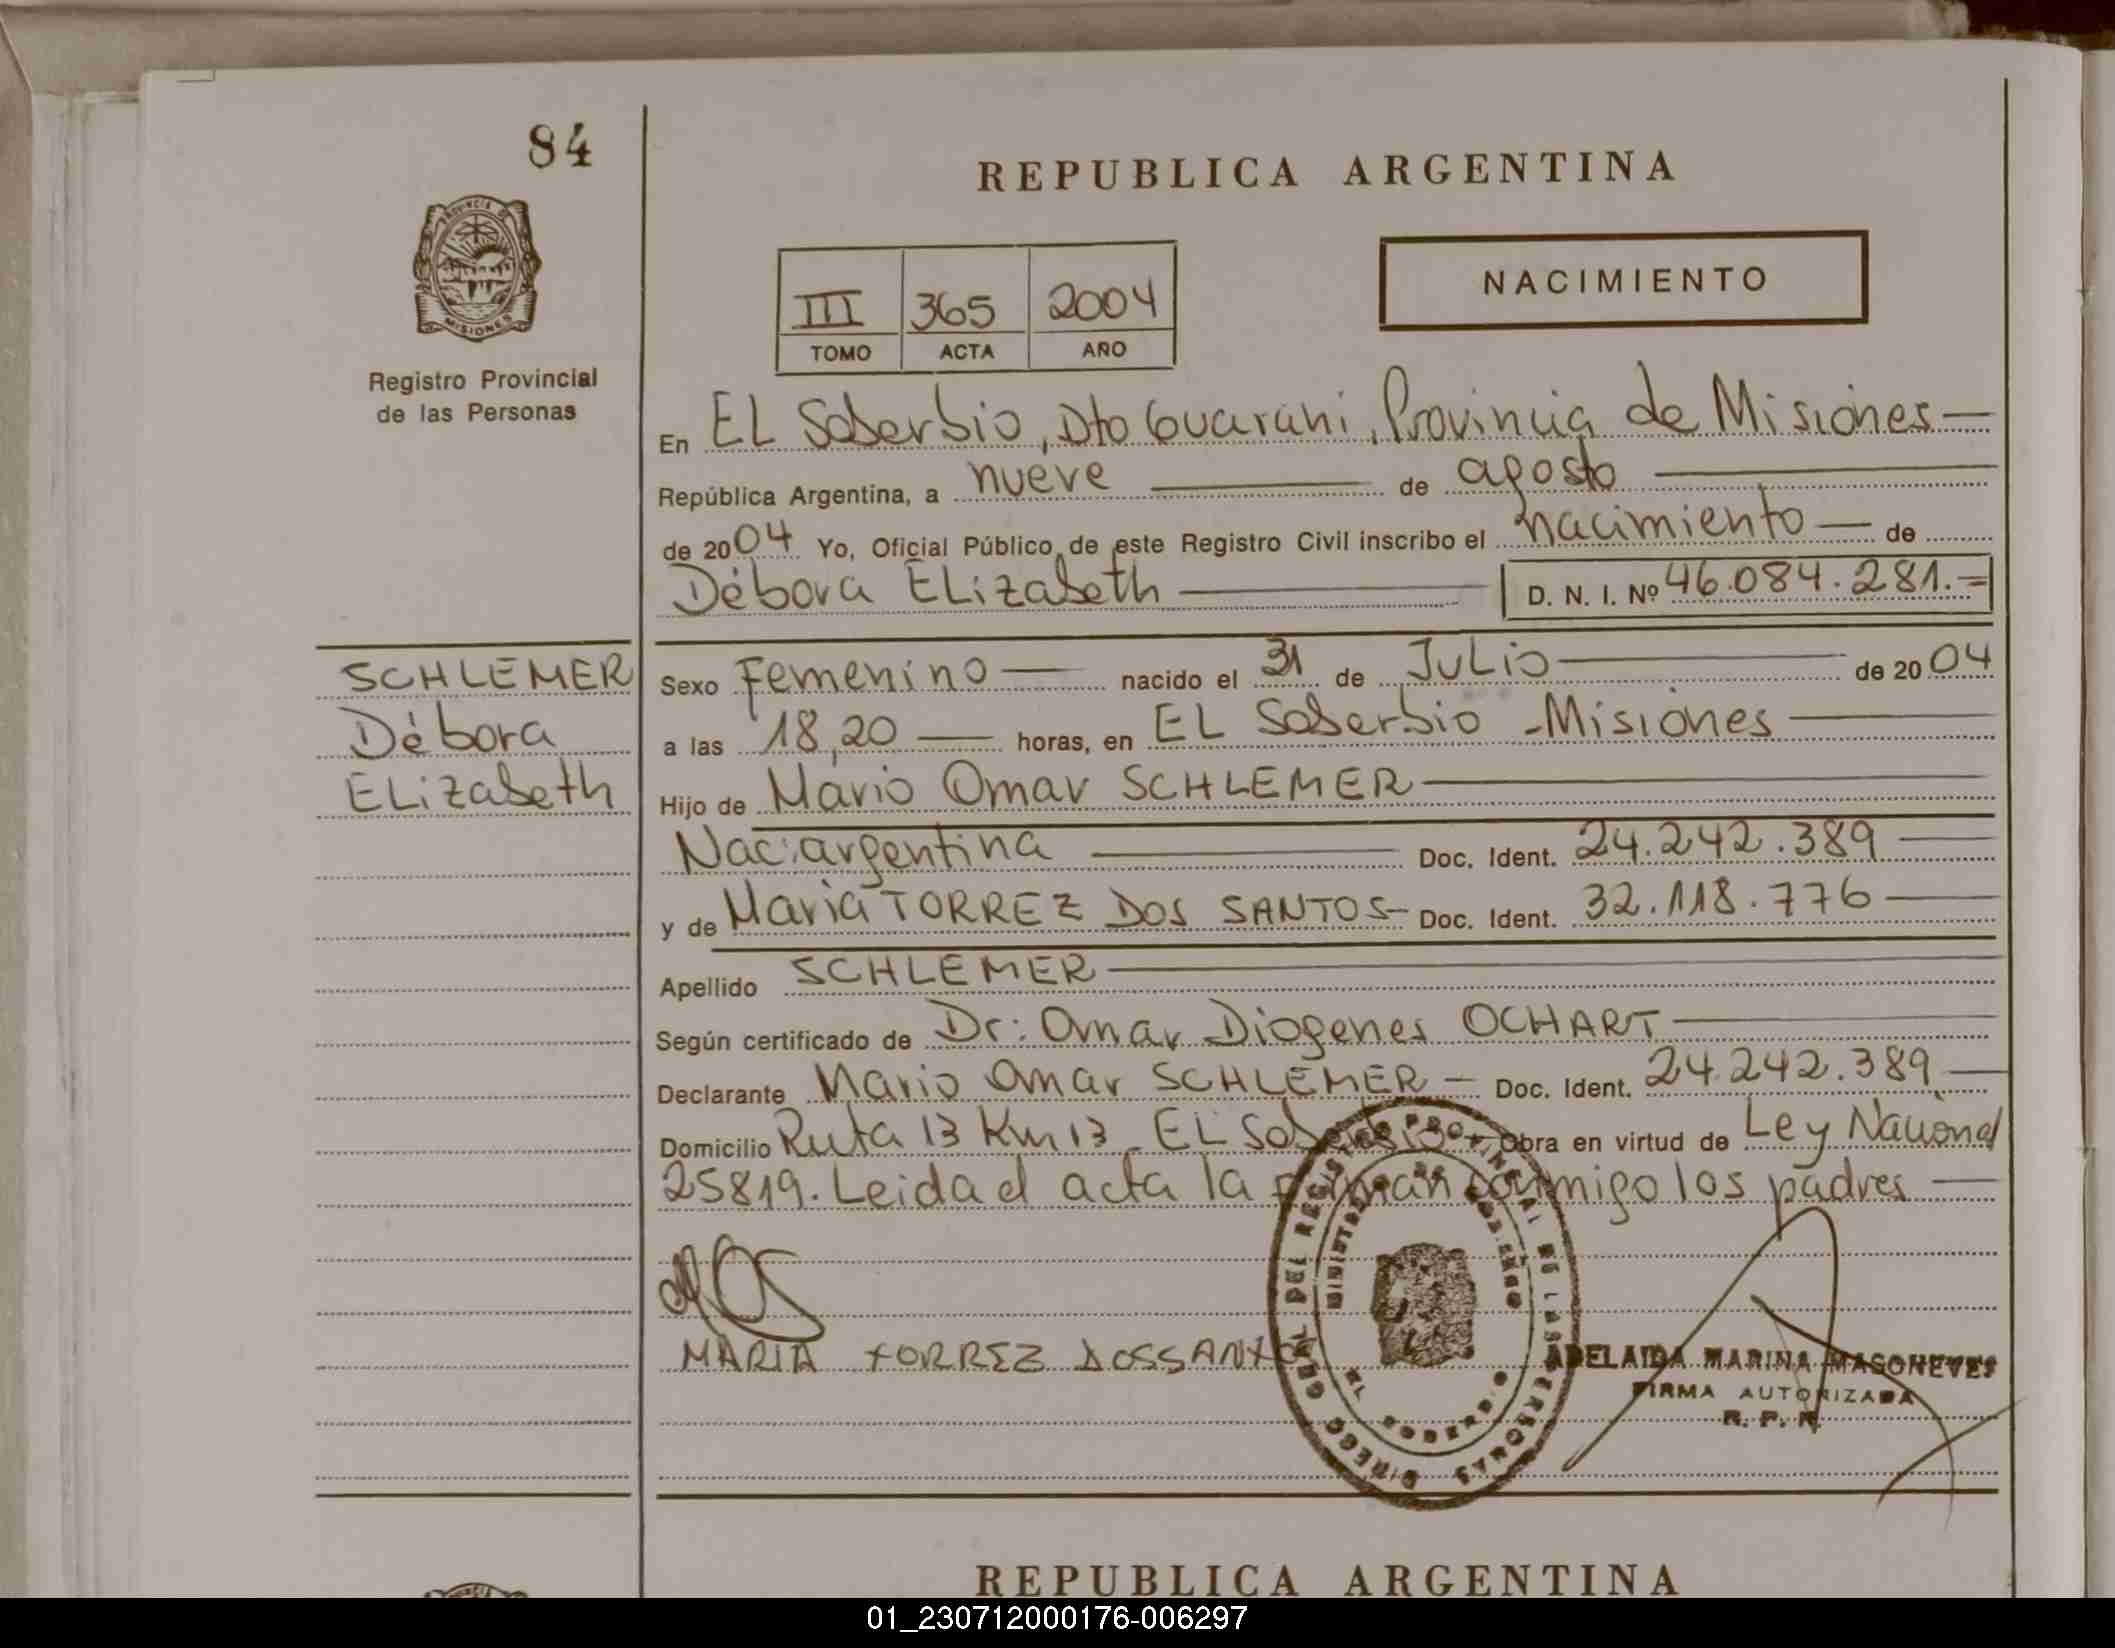 84
REPUBLICA ARGENTINA
PROVINCIA DE
MISIONES
Registro Provincial
de las Personas
NACIMIENTO
III 365 2004
TOMO ACTA AÑO
En EL Soberbio, Dto Guaraní, Provincia de Misiones
República Argentina, a nueve de agosto
de 2004 Yo, Oficial Público de este Registro Civil inscribo el nacimiento de
Débora ELizabeth D. N. I. Nº 46.084.281.=
SCHLEMER
Débora
ELizabeth
Sexo Femenino nacido el 31 de JuLio de 2004
a las 18,20 horas, en EL Soberbio - Misiones
Hijo de Mario Omar SCHLEMER
Nac: argentina Doc. Ident. 24.242.389
y de Maria TORREZ DOS SANTOS Doc. Ident. 32.118.776
Apellido SCHLEMER
Según certificado de Dr: Omar Diogenes OCHART
Declarante Mario Omar SCHLEMER Doc. Ident. 24.242.389
Domicilio Ruta 13 Km 13 - EL Soberbio Obra en virtud de Ley Nacional
25819. Leida el acta la firman conmigo los padres
MARIA TORREZ DOSSANTO
DIRECC. GRAL. DEL REGISTRO PROVINCIAL DE LAS PERSONAS
EL SOBERBIO
ADELAIDA MARINA MASONEVES
FIRMA AUTORIZADA
R. P. P.
REPUBLICA ARGENTINA
01_230712000176-006297